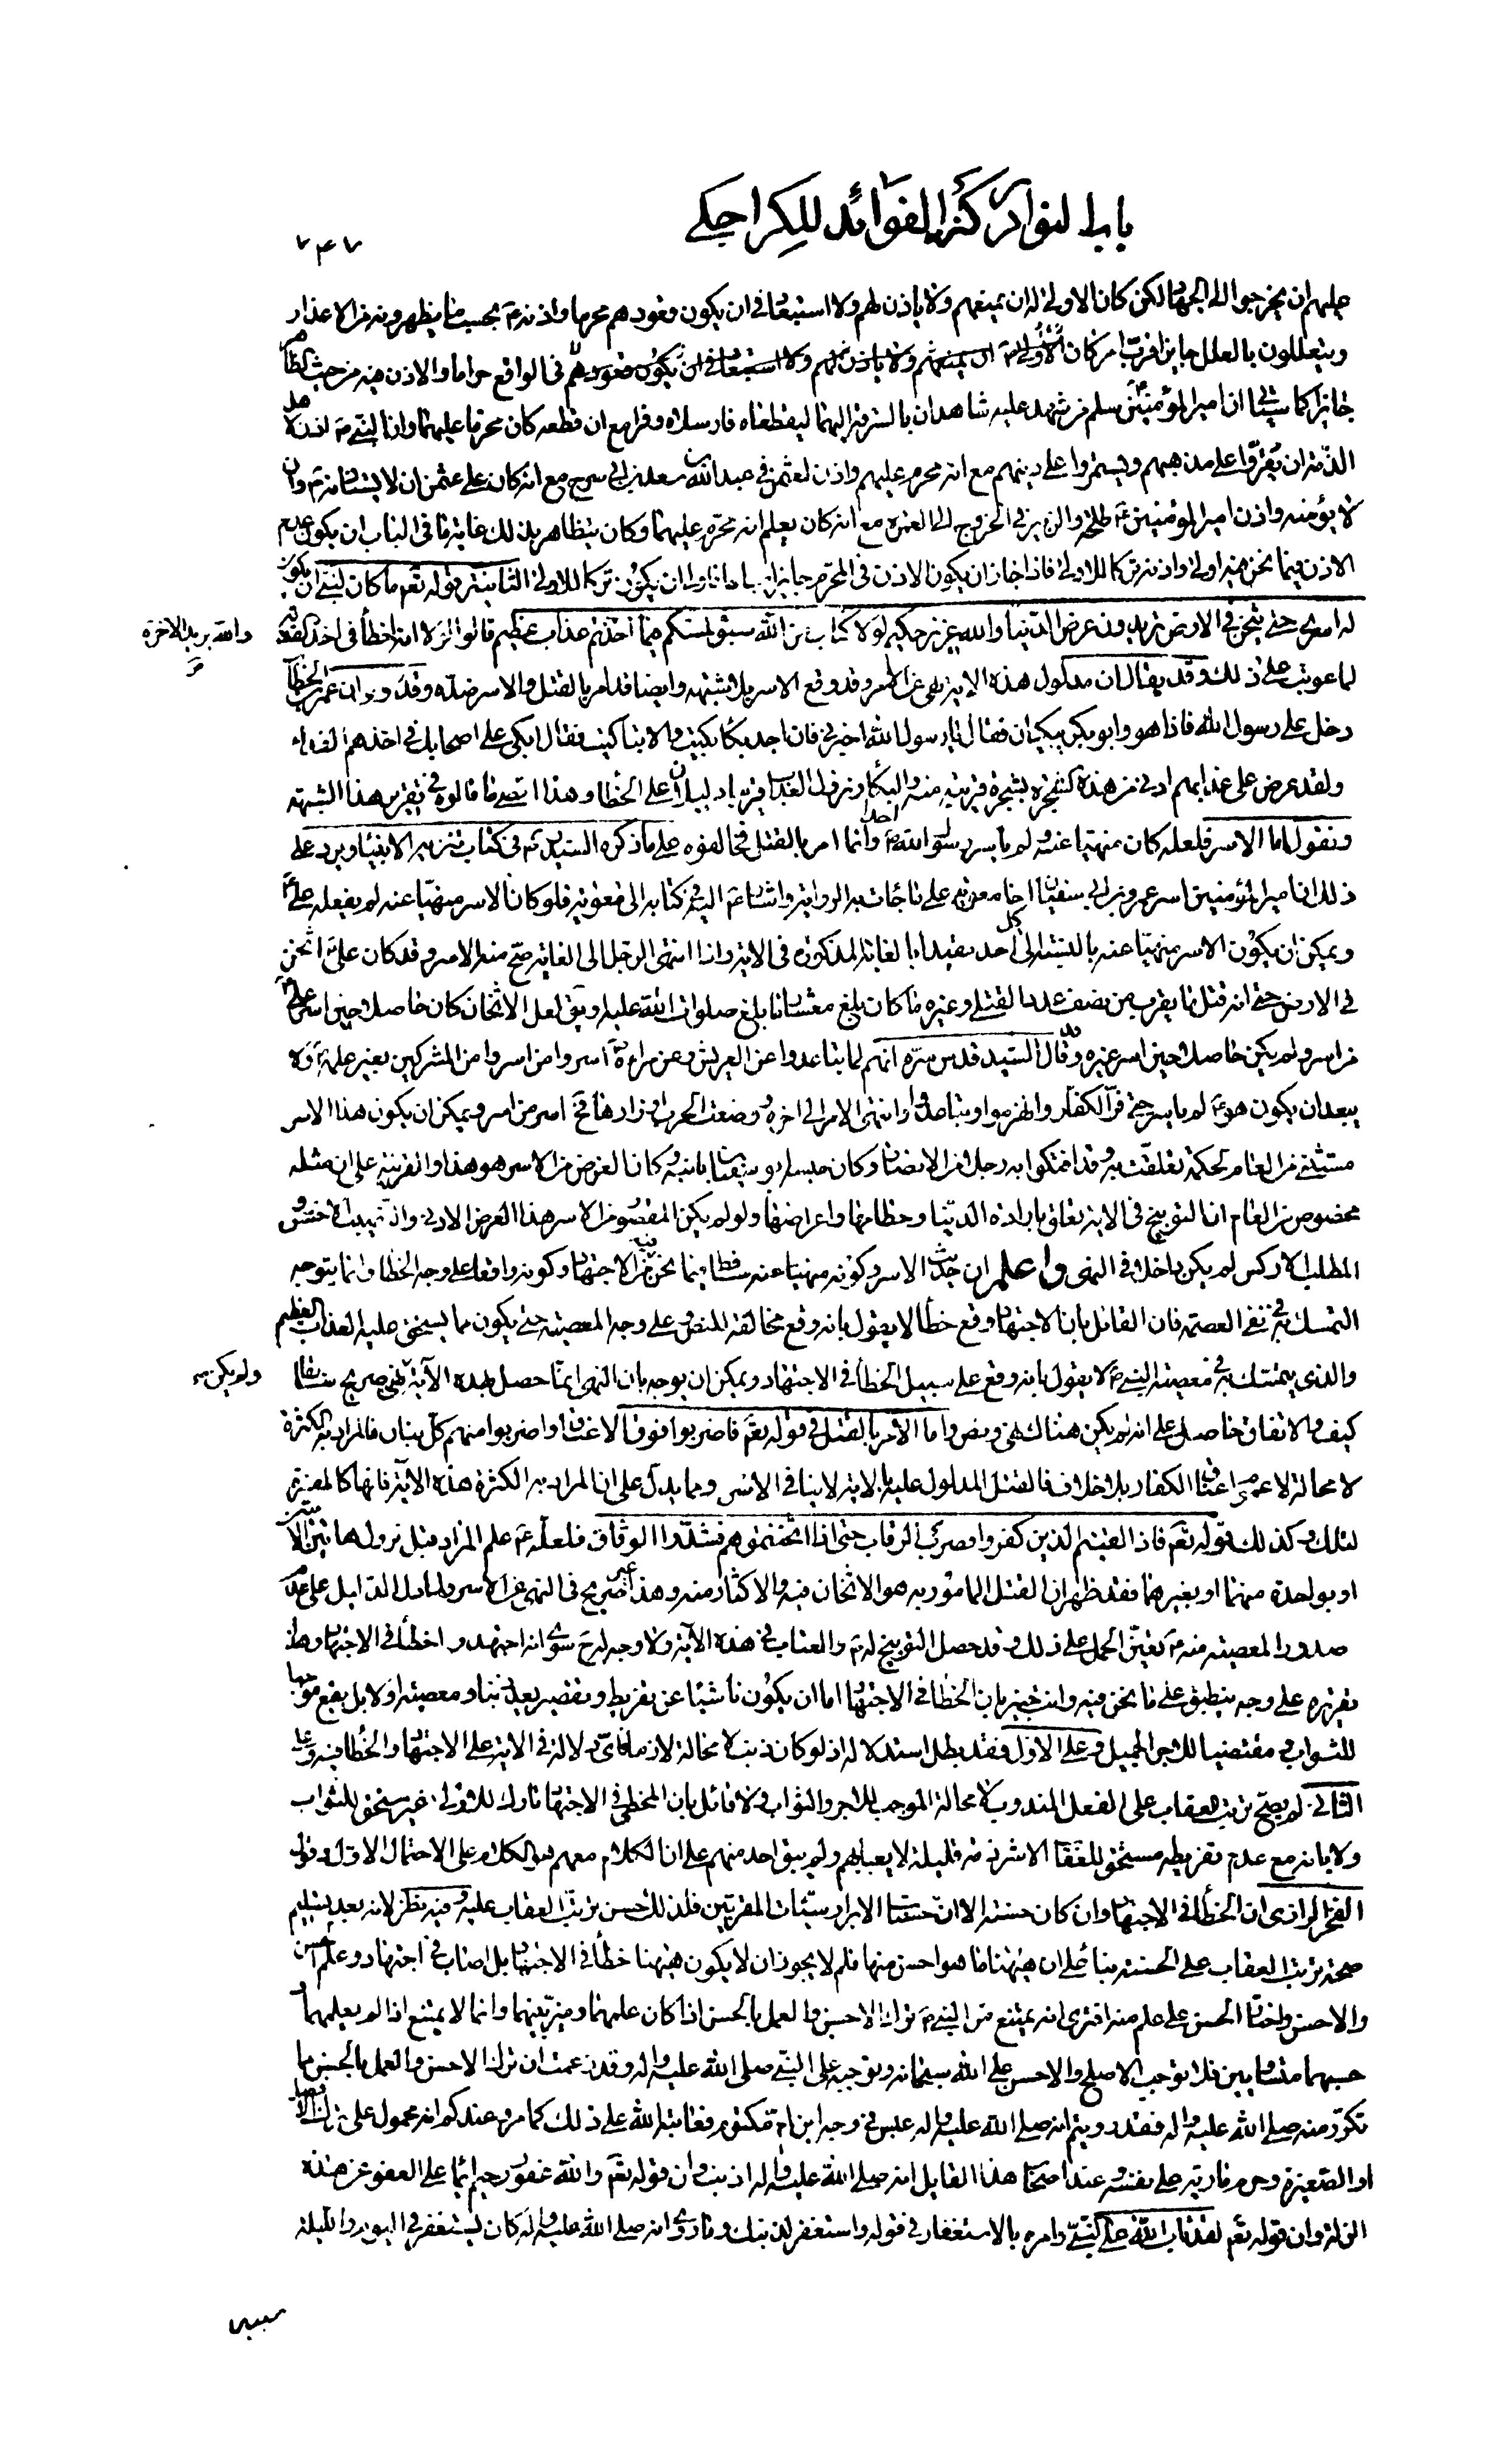 باب النوادر كنز الفوائد للكراجكي
٧٤٧
عليهم ان يخرجوا الى الجهاد لكن كان الاولى له ان يمنعهم ولا ياذن لهم ولا استبعاد في ان يكون قعودهم محرما واذنه بحسب ما يظهرونه من الاعذار
ويتعللون بالعلل جايزا فرب امر كان في الواقع حراما والاذن فيه من حيث
جايزا كما سيأتي ان امير المؤمنين سلم من شهد عليه شاهدان بالسرقة اليهما ليقطعاه فارسلاه وفرا مع ان قطعه كان محرما عليهما وان النبي
الذمة ان يقروا على مذهبهم ويستمروا على دينهم مع انه محرم عليهم واذن لعثمن في عبد الله بن سعد بن ابي سرح مع انه كان على عثمن ان لا
لا يؤمنه واذن امير المؤمنين ع طلحة والزبير في الخروج الى العمرة مع انه كان يعلم انه محرم عليهما وكان يتظاهر بذلك غاية ما في الباب ان يكون عدم
الاذن فيما نحن فيه اولى واذنه تركا للاولى فاذا جاز ان يكون الاذن في المحرم جايزا ان يكون تركا للاولى الثانية قوله تعم ما كان لنبي ان يكون
له اسرى حتى يثخن في الارض تريدون عرض الدنيا والله عزيز حكيم لولا كتاب من الله سبق لمسكم فيما اخذتم عذاب عظيم قالوا لولا انه اخطأ في اخذ
والله يريد الاخرة
لما عوتب على ذلك وقد يقال ان مدلول هذه الاية نهى عن الاسر وقد وقع الاسر بلا شبهة وايضا قد امر بالقتل والاسر ضده وقد روى ان عمر بن الخطاب
دخل على رسول الله فاذا هو وابو بكر يبكيان فقال يا رسول الله اخبرني فان اجد بكاء بكيت والا تباكيت فقال ابكي على اصحابك في اخذهم الفداء
ولقد عرض على عذابهم ادنى من هذه الشجرة لشجرة قريبة منه والبكاء ونزول العذاب قريبا دليلان على الخطا وهذا اقصى ما قالوه في تقرير هذا الشبهة
ونقول اما الاسر فلعله كان منهيا عنه ولم ياسر رسول الله احدا وانما امر بالقتل فخالفوه على ما ذكره السيد في كتاب تنزيه الانبياء ويرد على
ذلك ان امير المؤمنين اسر عمرو بن ابي سفيان اخا معوية على ما جاءت به الرواية واشار ع اليه في كتابه الى معوية فلو كان الاسر منهيا عنه لم يفعله علي
ويمكن ان يكون الاسر منهيا عنه بالنسبة الى كل احد مقيدا بالغاية المذكورة في الاية واذا انتهى الرجل الى الغاية صح منه الاسر وقد كان علي اثخن
في الارض حتى انه قتل ما يقرب من نصف عدد القتلى وغيره ما كان بلغ معشار ما بلغ صلوات الله عليه وبق لعل الاثخان كان حاصلا حين اسر علي
من اسر ولم يكن حاصلا حين اسر غيره وقال السيد قدس سره انهم لما تباعدوا عن العريش وعن مراه اسروا من اسروا من المشركين بغير علمه ولا
يبعد ان يكون هو لم ياسر حتى فر الكفار وانهزموا وتباعدوا وانتهى الامر الى اخره ووضعت الحرب اوزارها فح اسر من اسر ويمكن ان يكون هذا الاسر
مستثنى من العام لحكمة تعلقت به وقد افتكوا به رجلا من الانصار وكان حبسه ابو سفيان بابنه وكان الغرض من الاسر هو هذا والقرينة على ان مثله
مخصوص من العام ان التوبيخ في الاية تعلق بارادة الدنيا وحطامها واعراضها ولو لم يكن المقصود من الاسر هذا الغرض الادنى
المطلب الاركس لم يكن داخلا في النهى واعلم ان حديث الاسر وكونه منهيا عنه ساقط فيما نحن فيه من الاجتهاد وكونه واقعا على وجه الخطا وانما يتوجه
التمسك به في نفي العصمة فان القائل بان الاجتهاد وقع خطأ لا يقول بانه وقع مخالفة للنص وعلى وجه المعصية حتى يكون مما يستحق عليه العذاب العظيم
والذي يتمسك به في معصية النبي لا يقول بانه وقع على سبيل الخطأ في الاجتهاد ويمكن ان يوجه بان النهى انما حصل بهذه الاية نهى صريح سابقا
ولم يكن
كيف والاتفاق حاصل على انه لم يكن هناك نهى ونص واما الامر بالقتل في قوله تعم فاضربوا فوق الاعناق واضربوا منهم كل بنان فالمراد به الكثرة
لا محالة لا عموم اعناق الكفار بلا خلاف فالقتل المدلول عليه بالاية لا ينافي الاسر ومما يدل على ان المراد به الكثرة هذه الاية فانها كالمفسرة
لتلك وكذلك قوله تعم فاذا لقيتم الذين كفروا فضرب الرقاب حتى اذا اثخنتموهم فشدوا الوثاق فلعله ع علم المراد قبل نزول هاتين الايتين
او بواحدة منهما او بغيرهما فقد ظهر ان القتل المامور به هو الاثخان فيه والاكثار منه وهذا غير صريح في النهى عن الاسر ولما دل الدليل على عدم
صدور المعصية منه تعين الحمل على ذلك وقد حصل التوبيخ له والعتاب في هذه الاية ولا وجه له سوى انه اجتهد واخطأ في الاجتهاد وهذا
تقريره على وجه ينطبق على ما نحن فيه وانت خبير بان الخطأ في الاجتهاد اما ان يكون ناشيا عن تفريط وتقصير يعد ذنبا ومعصية او لا بل يقع موجبا
للثواب ومقتضيا للاجر الجميل وعلى الاول فقد بطل استدلاله اذ لو كان ذنبا لا محالة لازما فاي دلالة في الاية على الاجتهاد والخطأ فيه وعلى
الثاني لم يصح ترتب العقاب على الفعل المندوب لا محالة الموجب للاجر والثواب ولا قائل بان المخطئ في الاجتهاد تارك للاولى غير مستحق للثواب
ولا بانه مع عدم تفريطه مستحق للعقاب الا شرذمة قليلة لا يعبأ بهم ولم يبق احد منهم على ان الكلام معهم هو الكلام على الاحتمال الاول وقول
الفخر الرازي ان الخطأ في الاجتهاد وان كان حسنة الا ان حسنات الابرار سيئات المقربين فلذلك حسن ترتب العقاب عليه وفيه نظر لانه بعد تسليم
صحة ترتب العقاب على الحسنة بناء على ان ههنا ما هو احسن منها فلم لا يجوز ان لا يكون ههنا خطأ في الاجتهاد بل اصاب في اجتهاده وعلم الحسن
والاحسن واختار الحسن على علم منه افترى انه يمتنع من النبي ترك الاحسن والعمل بالحسن اذا كان علمهما وميز بينهما وانما لا يمتنع اذا لم يعلمهما
حسبهما متساويين فلا توجب الاصلح والاحسن على الله سبحانه وتوجبه على النبي صلى الله عليه واله وقد زعمت ان ترك الاحسن والعمل بالحسن مما
تكرر منه صلى الله عليه واله فقد رويتم انه صلى الله عليه واله عبس في وجه ابن ام مكتوم فعاتبه الله على ذلك كما مر وعندكم انه محمول على ترك الافضل
او الصغيرة وحرم مارية على نفسه وعند اصحاب هذا القايل انه صلى الله عليه واله اذنب وان قوله تعم والله غفور رحيم انما على العفو عن هذه
الزلة وان قوله تعم لقد تاب الله على النبي وامره بالاستغفار في قوله واستغفر لذنبك وما روى انه صلى الله عليه واله كان يستغفر في اليوم والليلة
سبعين